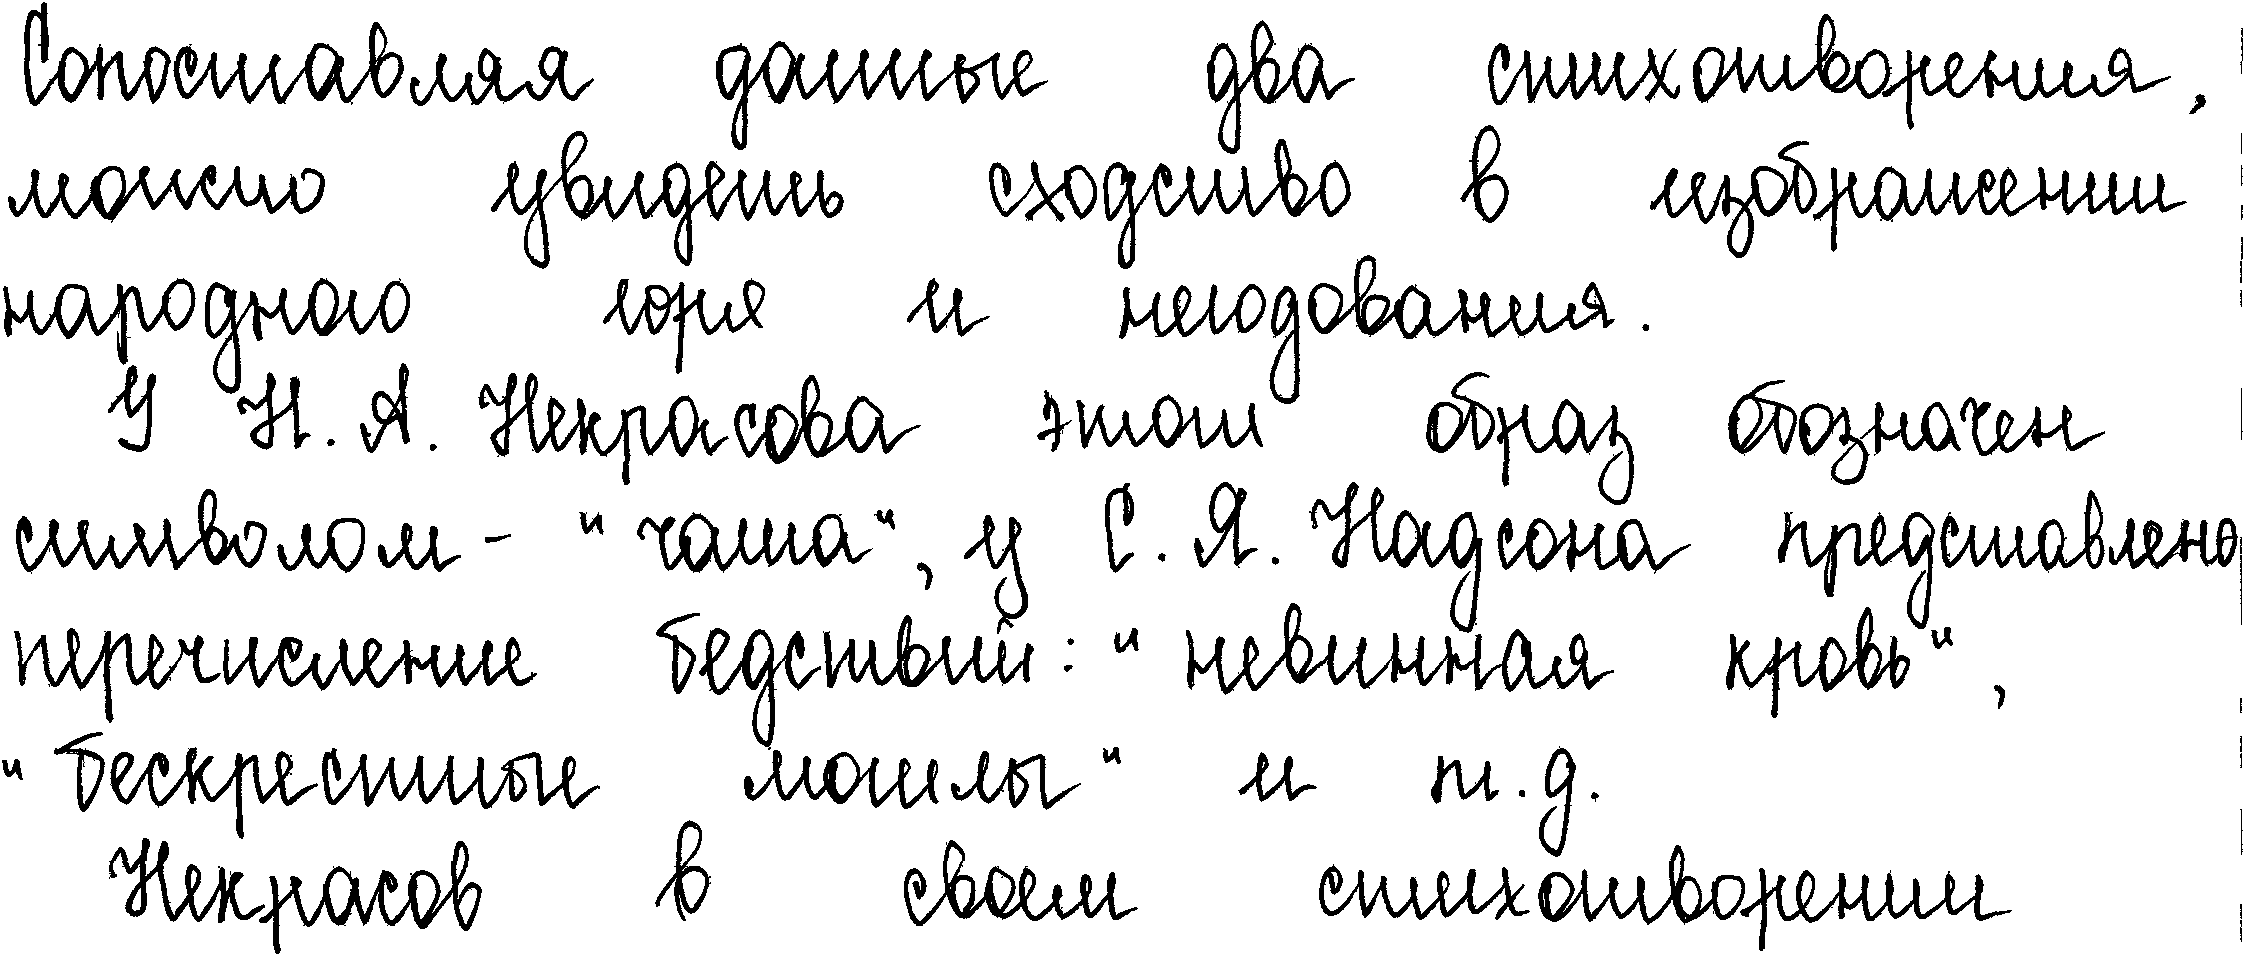 Сопоставляя данные два стихотворения,
можно увидеть сходство в изображении
народного горя и негодования.
У Н.А. Некрасова этот образ обозначен
символом - "чаша", у С.Я. Надсона представлено
перечисление бедствий: "невинная кровь",
"бескрестные могилы" и т.д.
Некрасов в своем стихотворении